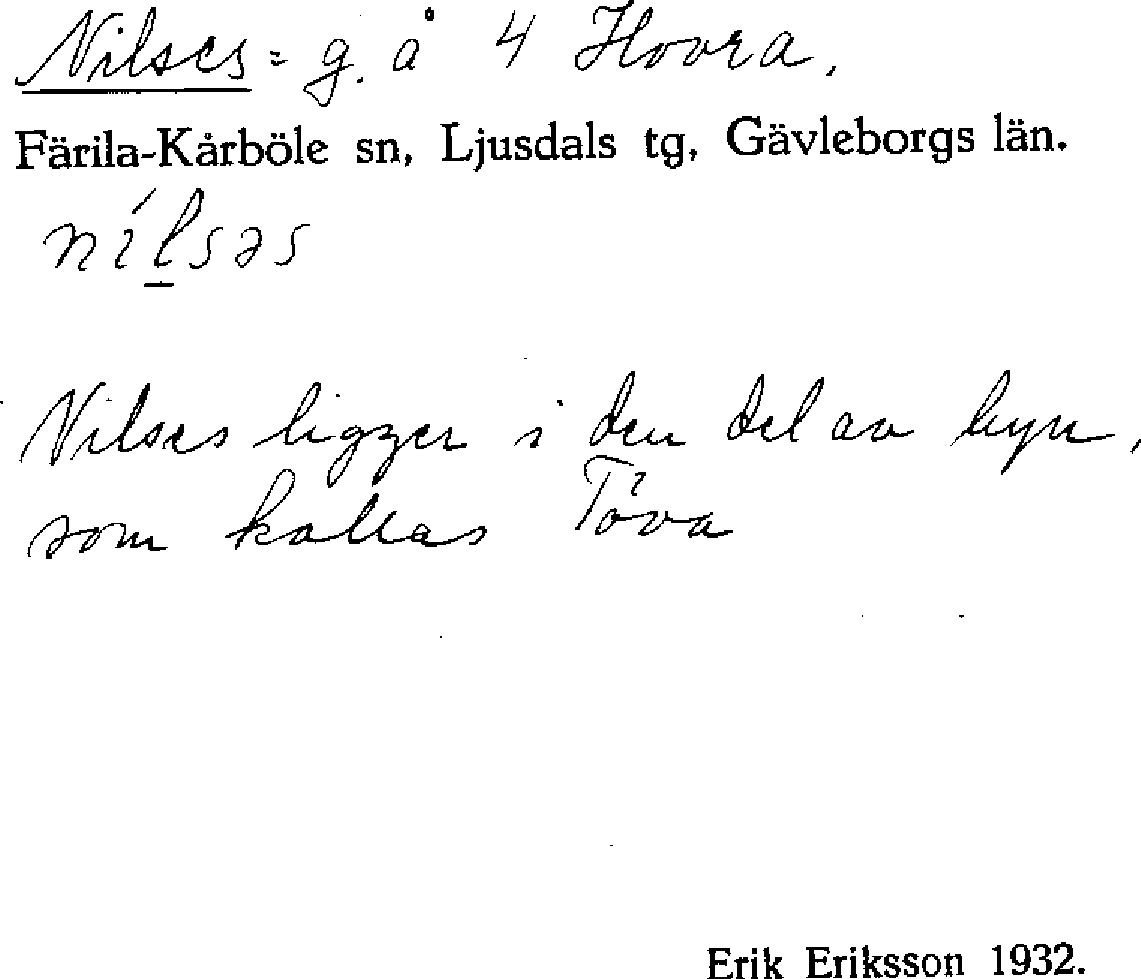 Nilses = g. å 4 Hovra.
Färila-Kårböle sn, Ljusdals tg, Gävleborgs län.
nílsəs
Nilses ligger i den del av byn,
som kallas Töva
Erik Eriksson 1932.